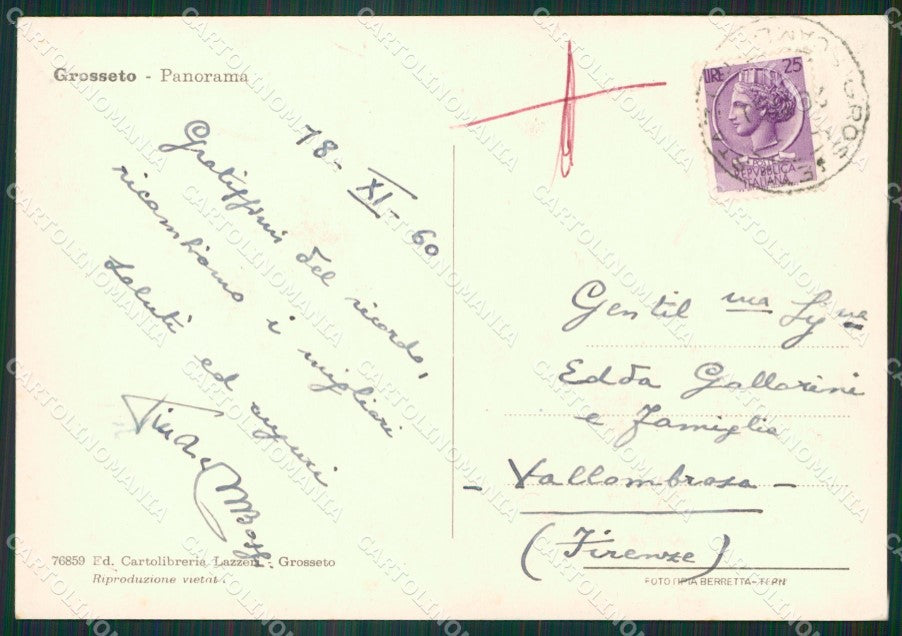 Grosseto - Panorama
LIRE 25
POSTE
REPVBBLICA
ITALIANA
18-XI-60
Gratissimi del ricordo,
ricambiamo i migliori
saluti ed auguri
Gentil ma Sig.na
Edda Gallorini
e Famiglia
- Vallombrosa -
(Firenze)
76859 Ed. Cartolibreria Lazzeri - Grosseto
Riproduzione vietat.
FOTOTIPIA BERRETTA - TERNI
CARTOLINOMANIA